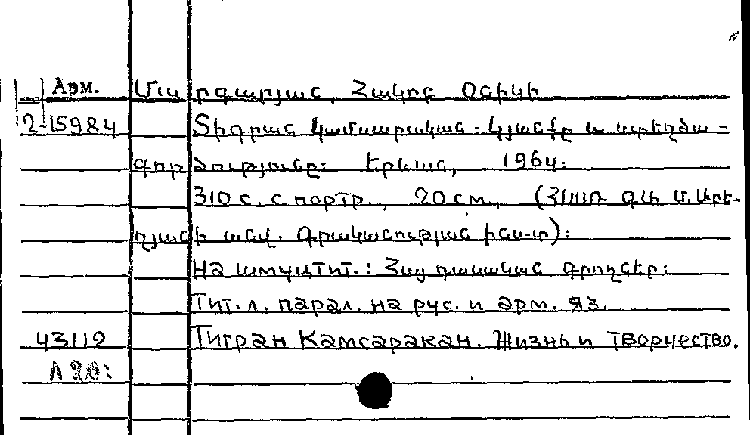 Арм. Մարգարյան, Հակոբ Օնիկի
2-15984 Տիգրան Կամսարական: Կյանքը և ստեղծա-
գործությունը: Երևան, 1964:
310 с. с портр., 20 см, (ՀՍՍՌ ԳԱ Մ. Աբե-
ղյանի անվ. Գրականության ինս-տ):
На шмуцтит.: Հայ դասական գրողներ:
Тит. л. парал. на рус. и арм. яз.
43119 Тигран Камсаракан. Жизнь и творчество.